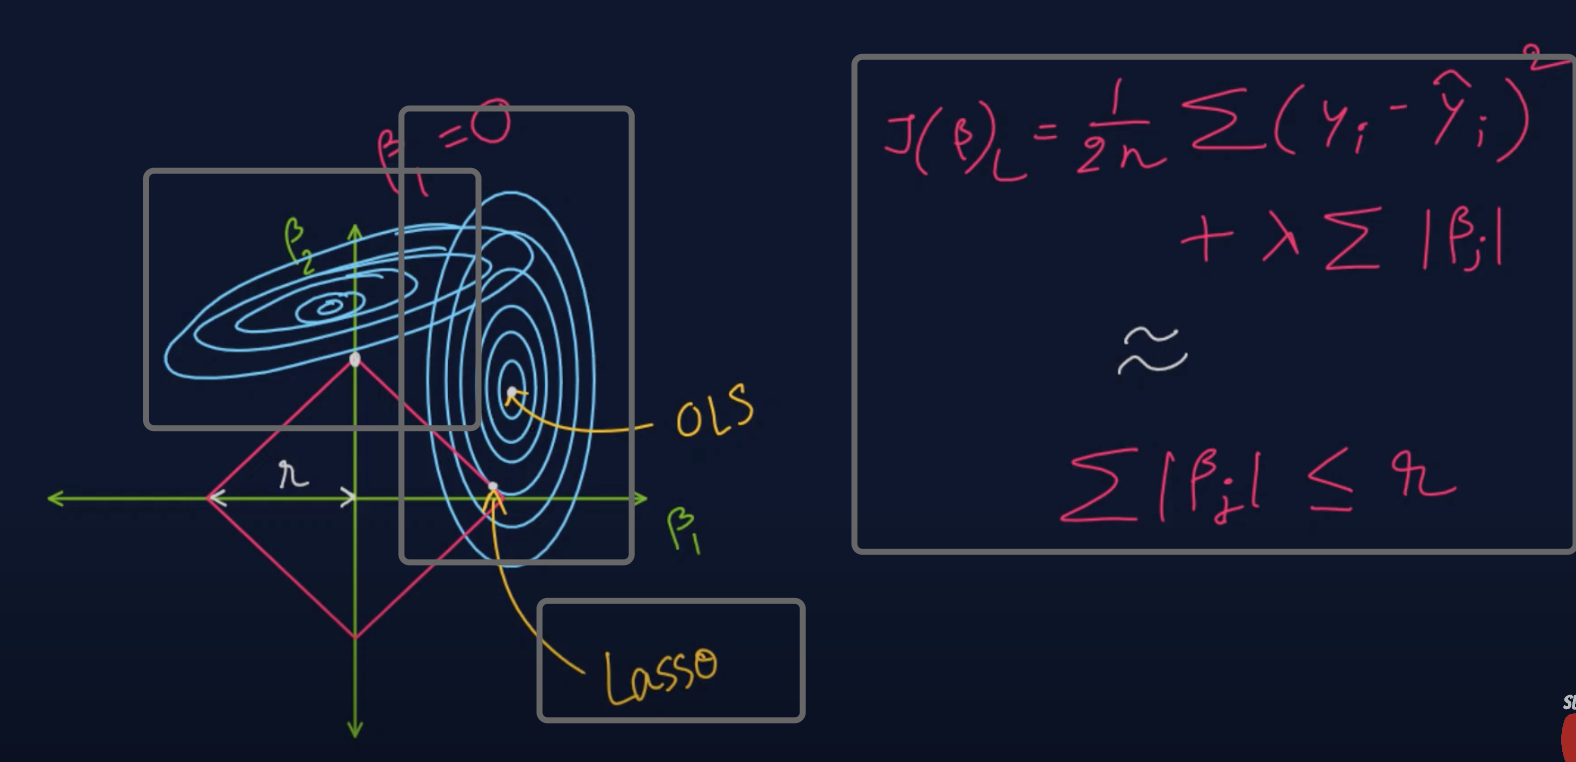 β₁ = 0
β₂
r
OLS
β₁
Lasso
J(β)_L = 1/2n Σ(yᵢ - ŷᵢ)²
+ λ Σ |βⱼ|
≈
Σ |βⱼ| ≤ r